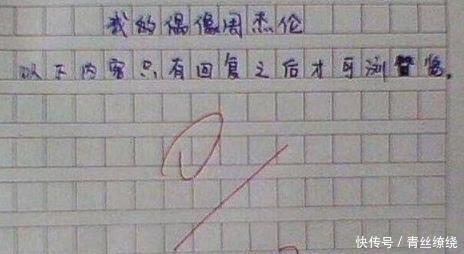 我的偶像周杰伦
以下内容只有回复之后才可浏览。
快传号／青丝缭绕